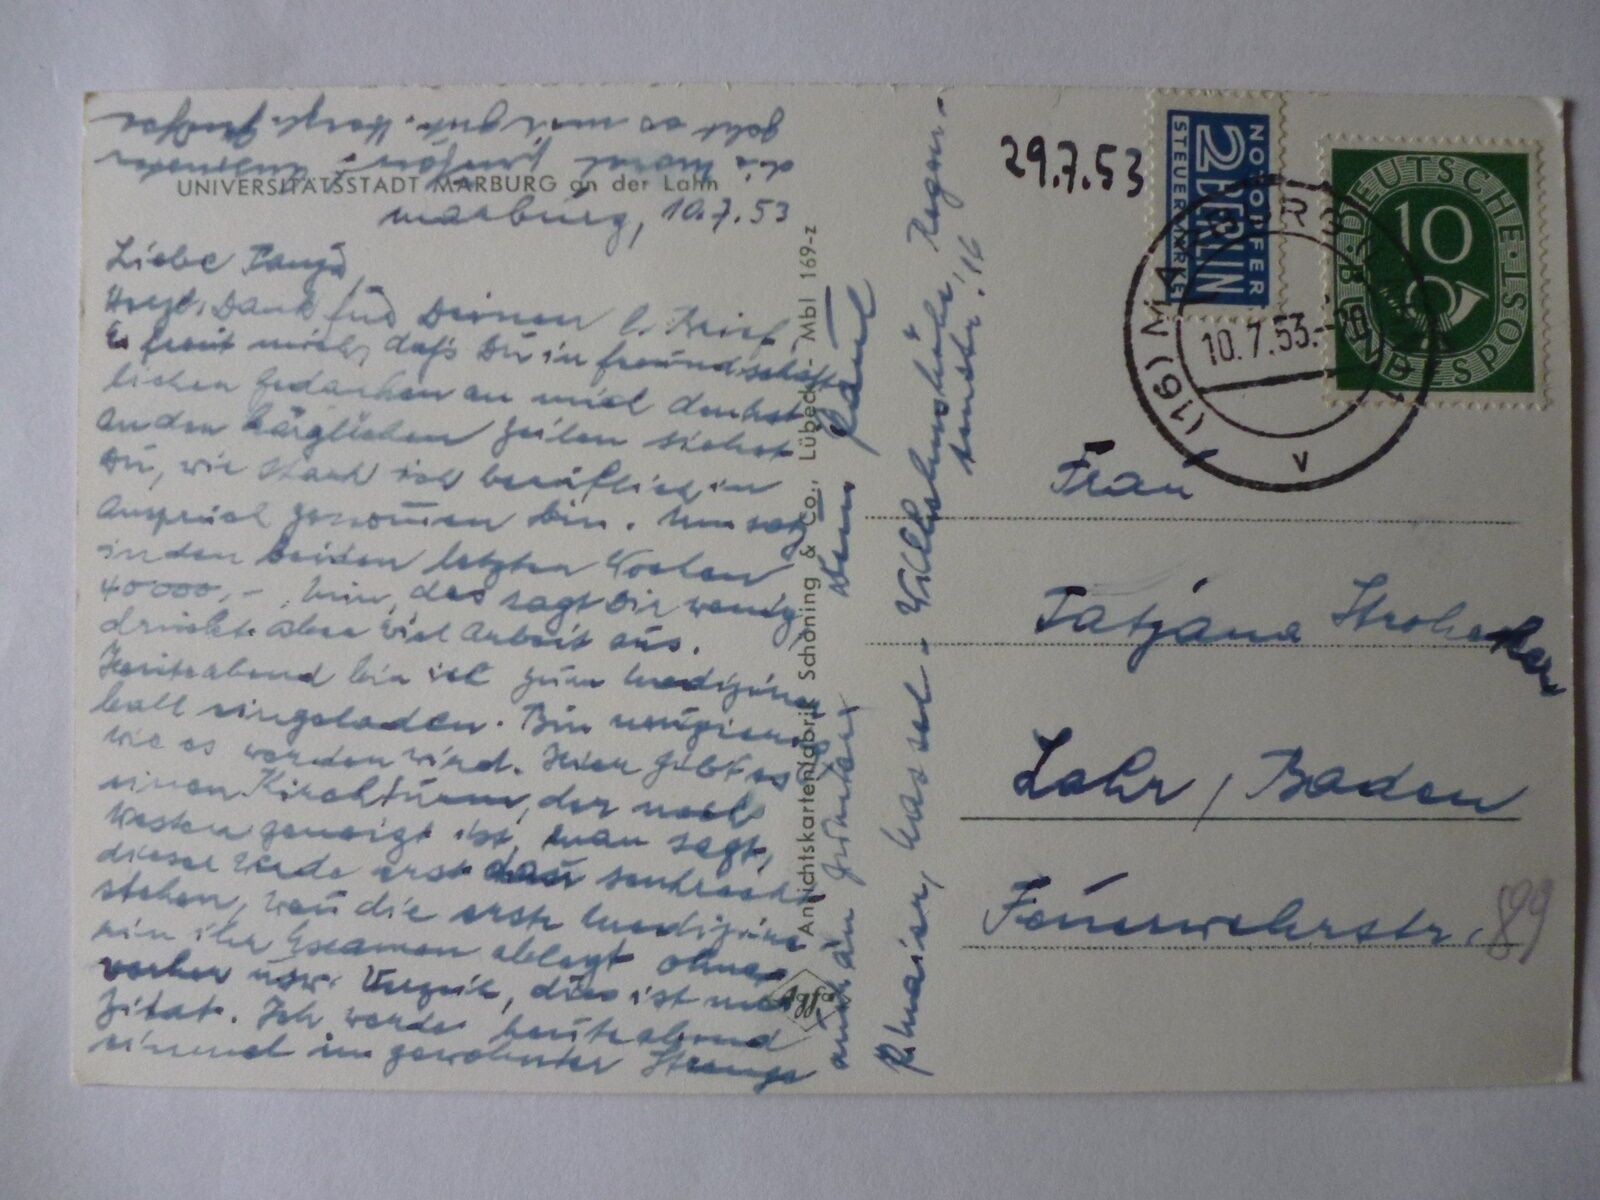 UNIVERSITÄTSSTADT MARBURG an der Lahn
Marburg, 10.7.53
Liebe Tanja
Herzl. Dank für Deinen l. Brief
Es freut mich, daß Du in freundschaft-
lichen Gedenken an mich denkst
An den kärglichen Zeilen siehst
Du, wie stark ich beruflich in
Anspruch genommen bin. Umsatz
in den beiden letzten Wochen
40000,-. Nun, das sagt Dir wenig,
drückt aber viel Arbeit aus.
Heuteabend bin ich zum Mediziner
ball eingeladen. Bin neugierig
wie es werden wird. Hier gibt es
einen Kirchturm, der nach
Westen geneigt ist, man sagt,
dieser werde erst dann senkrecht
stehen, wenn die erste Medizine
rin ihr Examen ablegt ohne
vorher usw. Verzeih, dies ist nur
Zitat. Ich werde heuteabend
einmal im gewohnter Strenge
die Moral
geht es mal gut. Herzl. Grüße
Dein Paul
Ansichtskartenfabrik Schöning & Co., Lübeck - Mbl 169-z
Agfa
P. Maier, Kassel - Wilhelmshöhe, Regen-
str. 16
29.7.53
NOTOPFER
2 BERLIN
STEUERMARKE
DEUTSCHE POST
10
BUNDESPOST
(16) MARBURG
10.7.53.-
v
Frau
Tatjana Strohecker
Lahr / Baden
Feuerwehrstr. 89